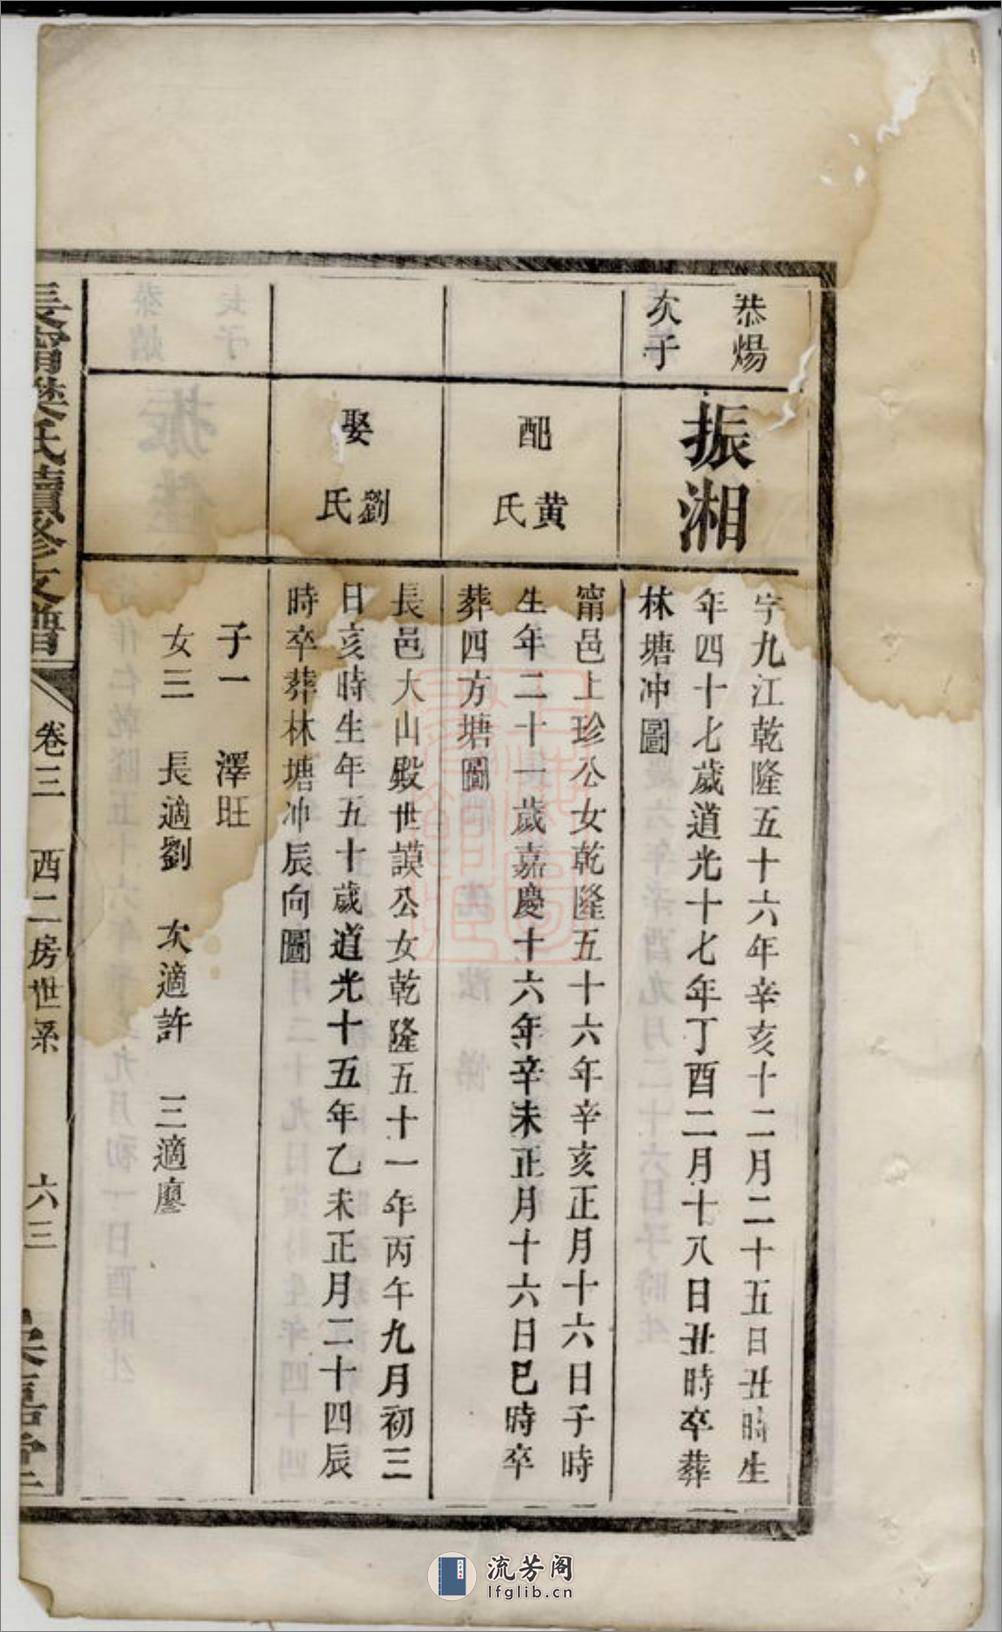 恭煬
次子
振湘
字九江乾隆五十六年辛亥十二月二十五日丑時生
年四十七歲道光十七年丁酉二月十八日丑時卒葬
林塘冲圖
配
黄
氏
甯邑上珍公女乾隆五十六年辛亥正月十六日子時
生年二十一歲嘉慶十六年辛未正月十六日巳時卒
葬四方塘圖
娶
劉
氏
長邑大山殿世謨公女乾隆五十一年丙午九月初三
日亥時生年五十歲道光十五年乙未正月二十四辰
時卒葬林塘冲辰向圖
子一 澤旺
女三 長適劉 次適許 三適廖
長甯 氏續修支譜
卷三 西二房世系
六三
流芳阁
lfglib.cn